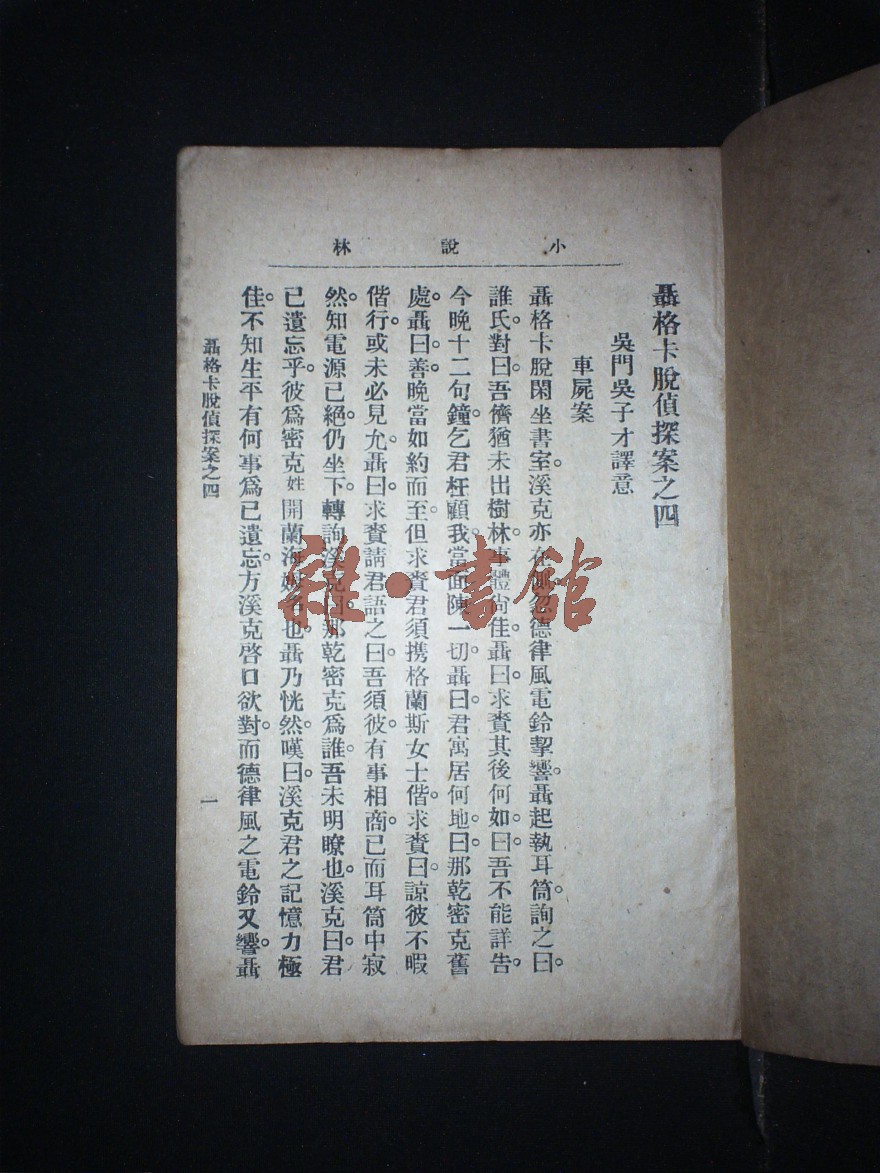 小說林
聶格卡脫偵探案之四
吳門吳子才譯意
車屍案
聶格卡脫閑坐書室。溪克亦在側。忽德律風電鈴掣響。聶起執耳筒詢之曰。
誰氏。對曰。吾儕猶未出樹林。事體尚佳。聶曰。求賚。其後何如。曰。吾不能詳告。
今晚十二句鐘。乞君枉顧。我當面陳一切。聶曰。君寓居何地。曰。那乾密克舊
處。聶曰。善。晚當如約而至。但求賚君須携格蘭斯女士偕。求賚曰。諒彼不暇
偕行。或未必見允。聶曰。求賚請君語之曰。吾須彼有事相商。已而耳筒中寂
然。知電源已絕。仍坐下。轉詢溪克曰。那乾密克爲誰。吾未明瞭也。溪克曰。君
已遺忘乎。彼爲密克姓開蘭海名者也。聶乃恍然嘆曰。溪克君之記憶力極
佳。不知生平有何事爲已遺忘。方溪克啓口欲對。而德律風之電鈴又響。聶
聶格卡脫偵探案之四
一
雜·書館